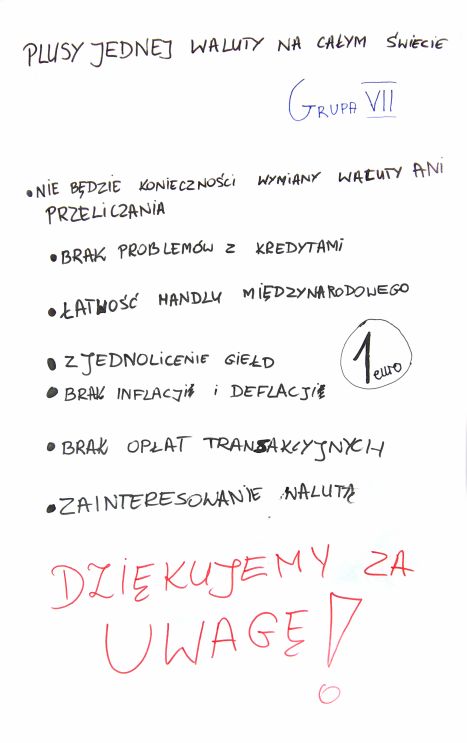 PLUSY JEDNEJ WALUTY NA CAŁYM ŚWIECIE
GRUPA VII
• NIE BĘDZIE KONIECZNOŚCI WYMIANY WALUTY ANI
PRZELICZANIA
• BRAK PROBLEMÓW Z KREDYTAMI
• ŁATWOŚĆ HANDLU MIĘDZYNARODOWEGO
• ZJEDNOLICENIE GIEŁD
1 euro
• BRAK INFLACJI I DEFLACJI
• BRAK OPŁAT TRANSAKCYJNYCH
• ZAINTERESOWANIE WALUTĄ
DZIĘKUJEMY ZA
UWAGĘ!